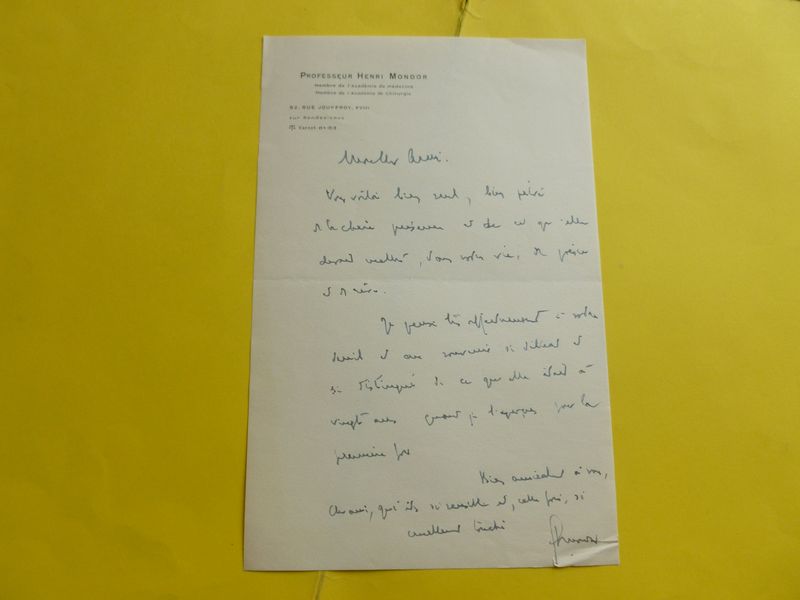 PROFESSEUR HENRI MONDOR
Membre de l'Académie de Médecine
Membre de l'Académie de Chirurgie
62, RUE JOUFFROY, XVIII
sur Rendez-vous
Mon cher Ami.
Vous voilà bien seul, bien privé
de la chère présence et de ce qu'elle
devait mettre, dans votre vie, de
et de
Je pense très affectueusement à votre
deuil et au souvenir si délicat et
si distingué de ce que elle était à
vingt ans quand je l'aperçus pour la
première fois
Bien amicalement à vous,
cher ami, qui êtes si sensible et, cette fois, si
cruellement touché